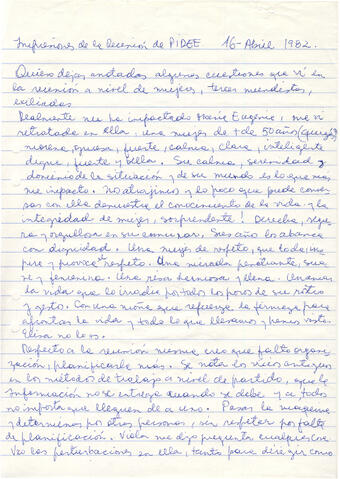 Impresiones de la Reunión de PIDEE 16-Abril 1982.
Quiero dejar anotadas algunas cuestiones que vi en
la reunión a nivel de mujeres, tercer mundistas,
exiliadas
Realmente me ha impactado María Eugenia, me vi
retratada en ella, una mujer de + de 50 años (quizás)
morena, gruesa, fuerte, calma, clara, inteligente
dulce, fuerte y bella. Su calma, serenidad y
dominio de la situación y de su mundo es lo que más
me impacto. No atrajimos y lo poco que pude conver
sar con ella demuestra el conocimiento de la vida y la
integridad de mujer, sorprendente! Derecha, segu
ra y orgullosa en su caminar. Sus años los abarca
con dignidad. Una mujer de respeto, que todo ins
pire y provoca respeto. Una mirada penetrante, sua
ve y femenina. Una risa hermosa y llena.
la vida que lo irradia por todos los poros de su rostro
y gesto. Con una niñez que refuerza la firmeza para
afrontar la vida y todo lo que llevamos y hemos visto.
Elisa no lo es.
Respecto a la reunión misma, creo que faltó organi
zación, planificarla más. Se nota los vicios antiguos
en los métodos de trabajo a nivel de partido, que la
Información no se entrega cuando se debe y a todos
no importa que lleguen de a uno. Pasar la mañana
y determinar por otras personas, sin respetar por falta
de planificación. Viola me dijo pregunta cualquier cosa
Veo las perturbaciones en ella, tanto para dirigir como